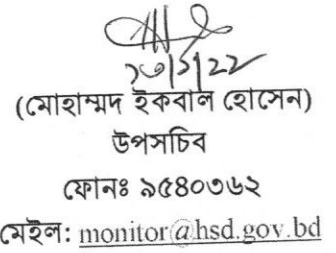 ২৩/১/২২
(মোহাম্মদ ইকবাল হোসেন)
উপসচিব
ফোনঃ ৯৫৪০৩৬২
মেইল: monitor@hsd.gov.bd